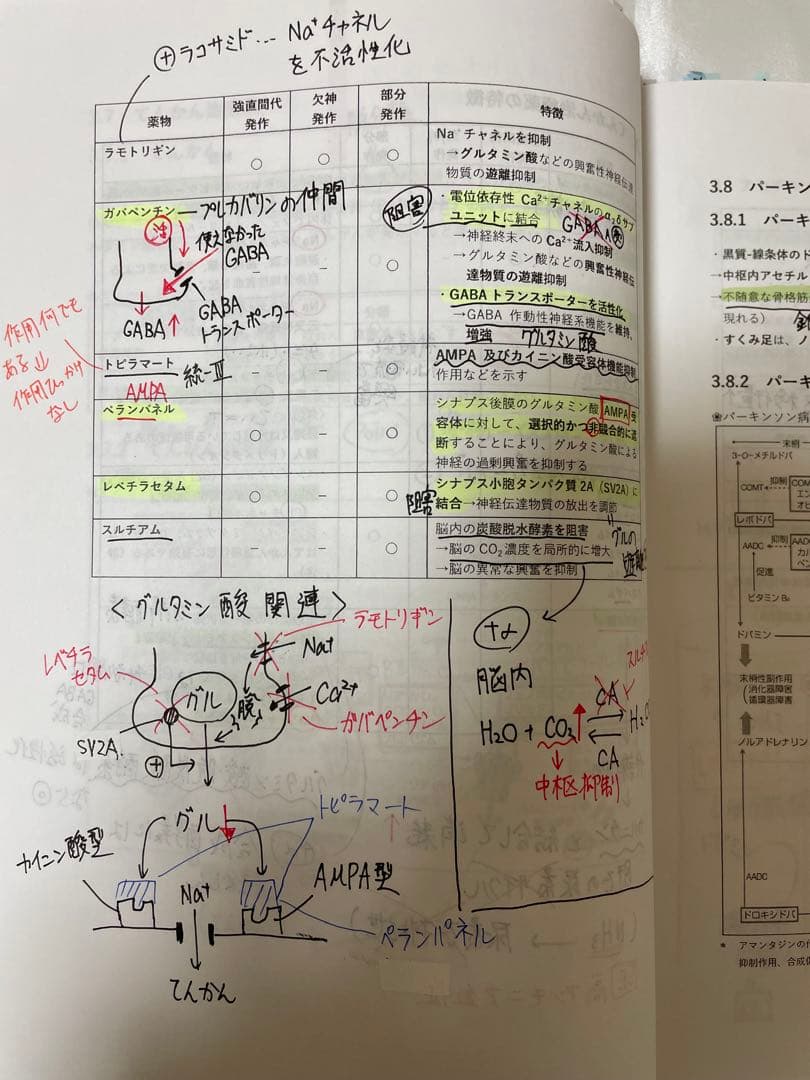 ⊕ラコサミド… Na⁺チャネル
を不活性化
薬物 強直間代発作 欠神発作 部分発作 特徴
ラモトリギン ○ ○ ○
Na⁺チャネルを抑制
→グルタミン酸などの興奮性神経伝達
物質の遊離抑制
ガバペンチン − − ○
プレガバリンの仲間
阻害
・電位依存性 Ca²⁺チャネルのα₂δサブ
ユニットに結合
GABA A
→神経終末への Ca²⁺流入抑制
→グルタミン酸などの興奮性神経伝
達物質の遊離抑制
・GABAトランスポーターを活性化
→GABA 作動性神経系機能を維持、
増強 グルタミン酸
活
使えなかった
GABA
GABA↑
GABA
トランスポーター
作用何でも
ある
作用ひっかけ
なし
トピラマート − − ○
統-Ⅲ
AMPA 及びカイニン酸受容体機能抑制
作用などを示す
AMPA
ペランパネル ○ − ○
シナプス後膜のグルタミン酸 AMPA 受
容体に対して、選択的かつ非競合的に遮
断することにより、グルタミン酸による
神経の過剰興奮を抑制する
レベチラセタム ○ − ○
阻害
シナプス小胞タンパク質 2A（SV2A）に
結合→神経伝達物質の放出を調節
スルチアム − − ○
脳内の炭酸脱水酵素を阻害
→脳の CO₂ 濃度を局所的に増大
→脳の異常な興奮を抑制
グルの
＜グルタミン酸関連＞
ラモトリギン
レベチラ
セタム
Na⁺
グル
脱
Ca²⁺
ガバペンチン
SV2A.
⊕
グル↓
トピラマート
カイニン酸型
Na⁺
AMPA型
ペランパネル
てんかん
+α
脳内
H₂O + CO₂↑ CA
CA
中枢抑制
3.8 パーキン
3.8.1 パーキ
・黒質-線条体のド
→中枢内アセチル
→不随意な骨格筋
現れる）
・すくみ足は、ノ
3.8.2 パーキ
❀パーキンソン病
末梢
3-O-メチルドパ
COMT 抑制 COM
エン
オピ
レボドパ
AADC 抑制 AAD
カル
ベン
促進
ビタミン B₆
ドパミン
末梢性副作用
消化器障害
循環器障害
ノルアドレナリン
AADC
ドロキシドパ
* アマンタジンの作
抑制作用、合成促